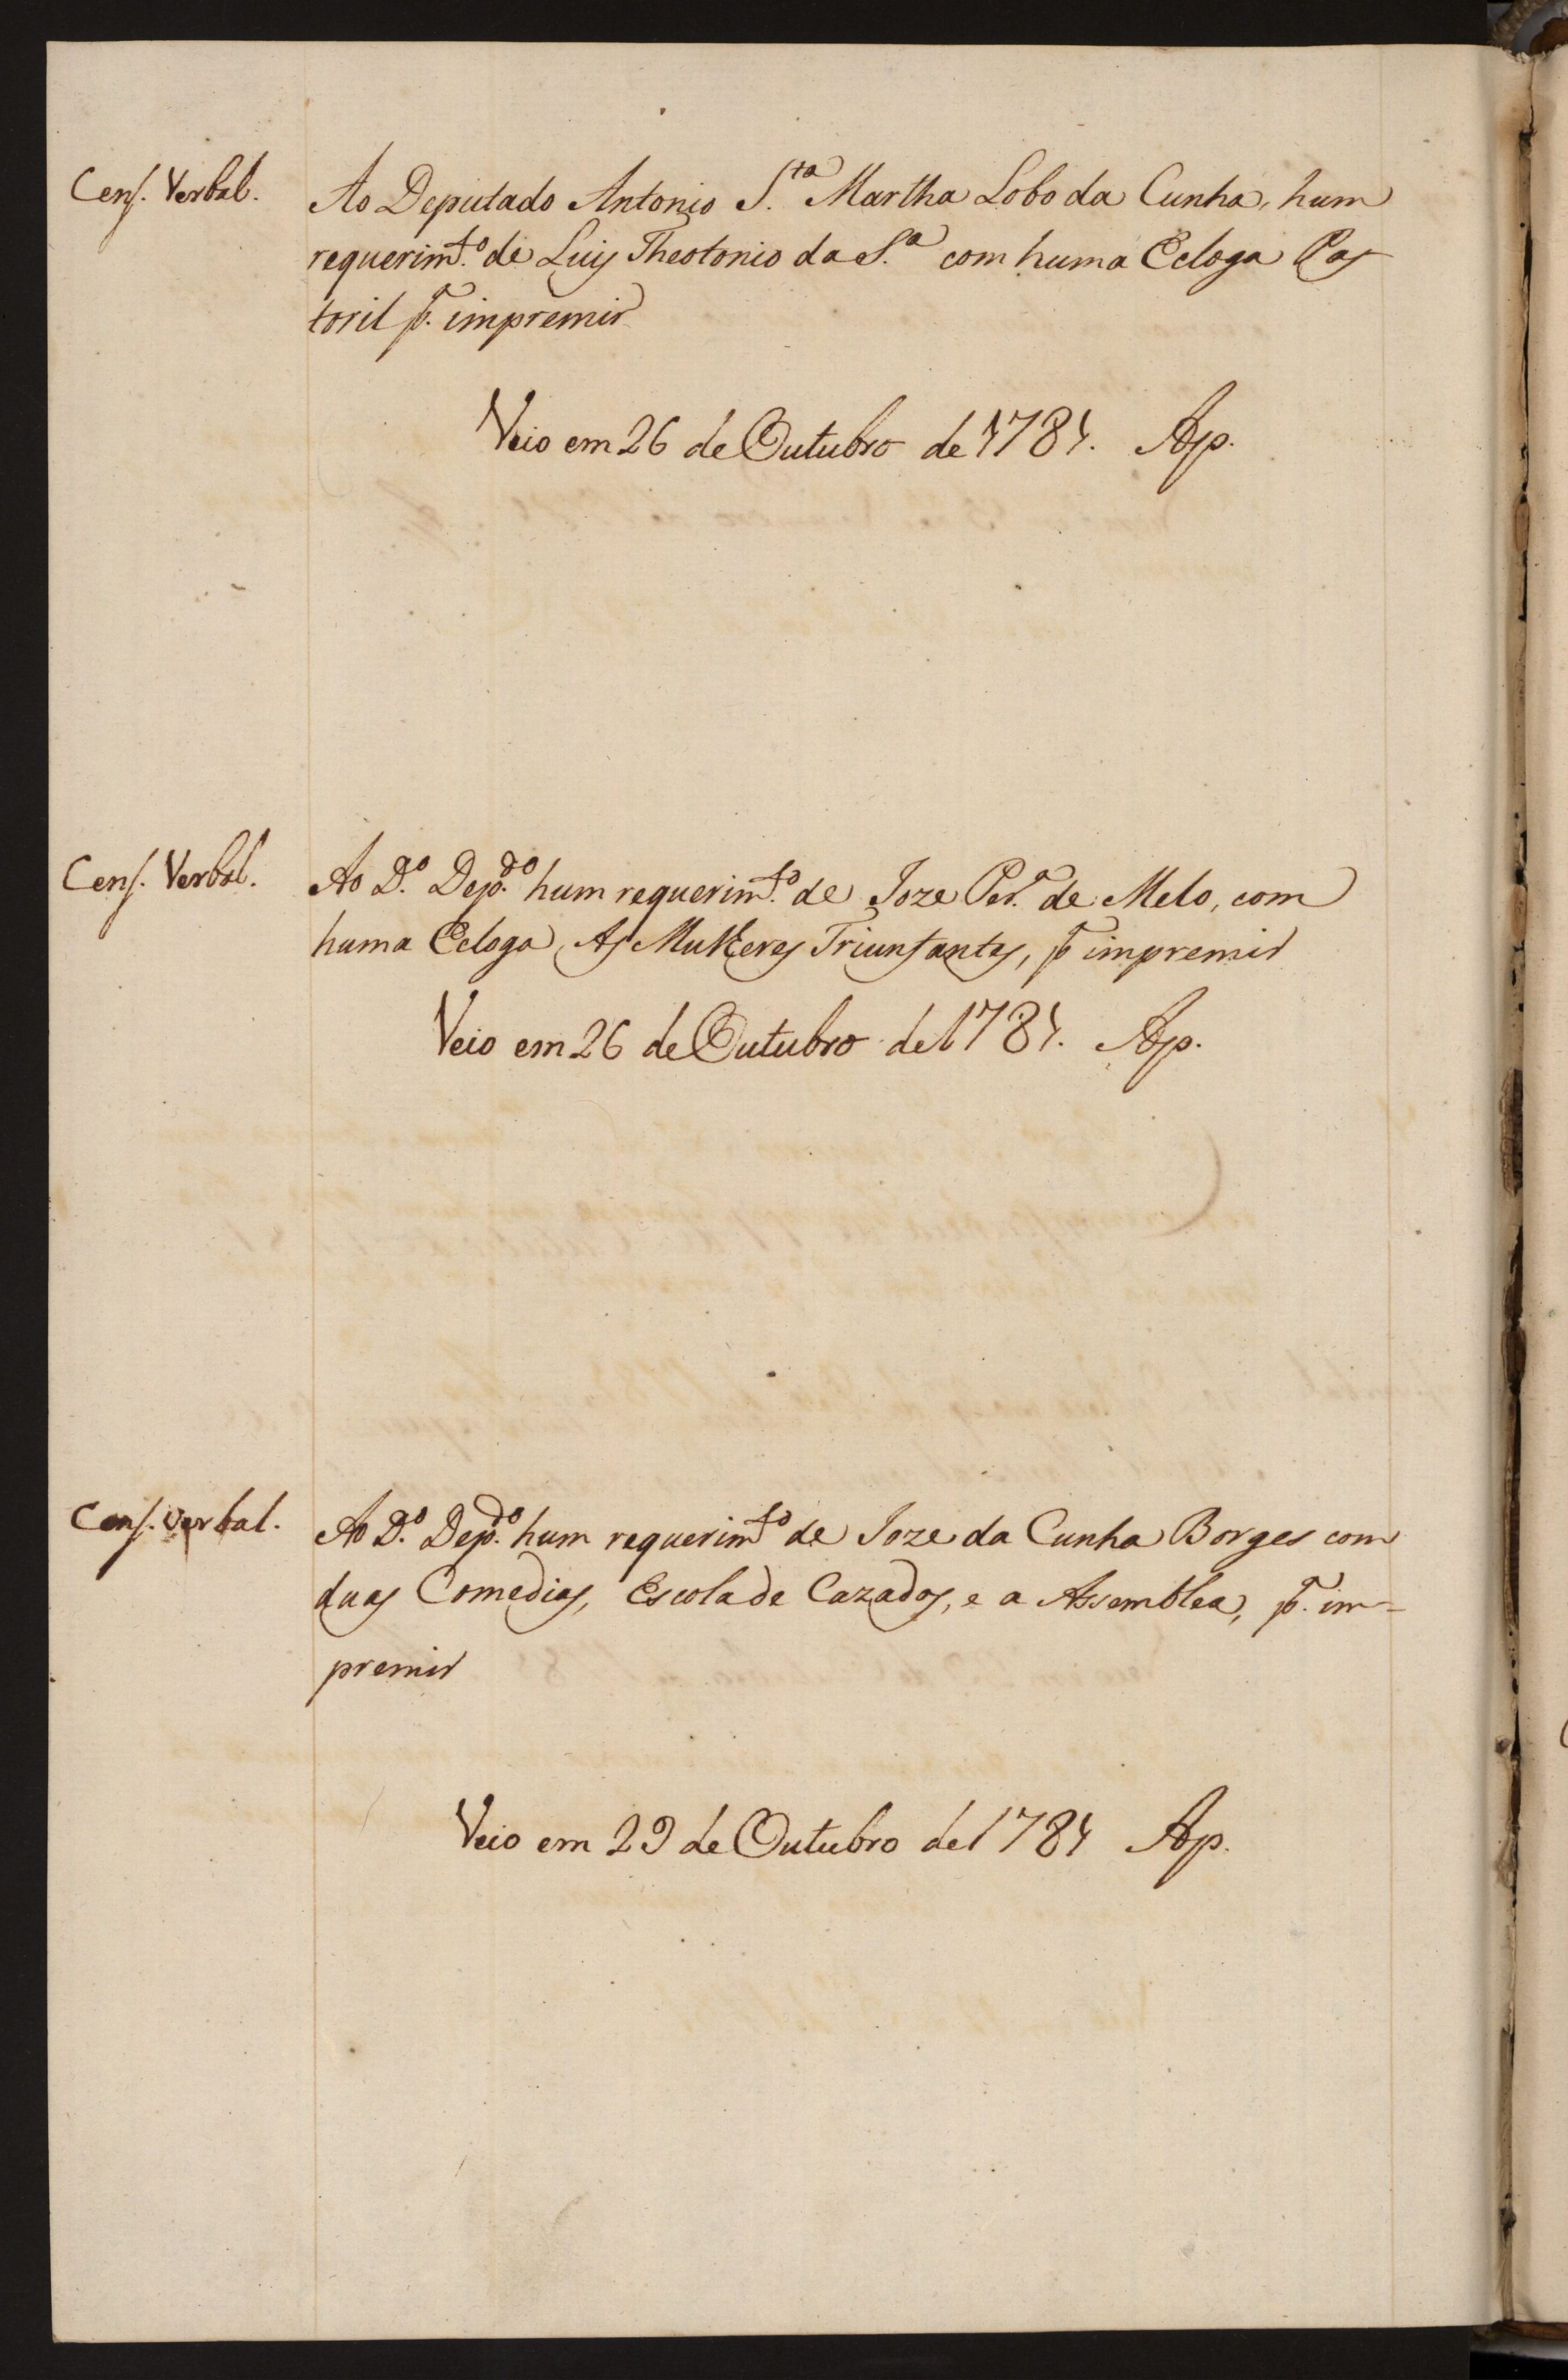 Cens. Verbal.
Ao Deputado Antonio S.ta Martha Lobo da Cunha, hum
requerim.to de Luis Theotonio da S.a com huma Ecloga Pas
toril p.a impremir
Veio em 26 de Outubro de 1784. Ap.
Cens. Verbal.
Ao D.o Dep.do hum requerim.to de Joze Per.a de Melo, com
huma Ecloga, As Mulheres Triunfantes, p.a impremir
Veio em 26 de Outubro de 1784. Ap.
Cens. verbal.
Ao D.o Dep.do hum requerim.to de Joze da Cunha Borges com
duas Comedias, Escola de Cazados, e a Assemblea, p.a im-
premir
Veio em 29 de Outubro de 1784 Ap.